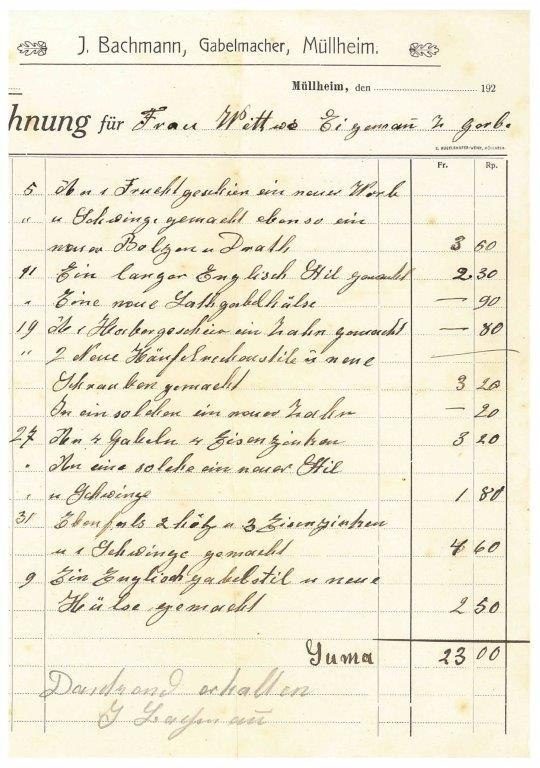 J. Bachmann, Gabelmacher, Müllheim.
Müllheim, den 192
hnung für Frau Wettwe Eigemañ z Gerb.
Fr. Rp.
5 An 1 Fruchtgeschier ein neuer Worb
" u Schwinge gemacht ebenso ein
neuer Bolzen u Drath 3 50
11 Ein langer Englisch Stil gemacht 2.30
" Eine neue Lathgabelhülse — 90
19 An 1 Habergeschier ein Zahn gemacht — 80
" 2 Neue Häufelrechenstile u neue
Schrauben gemacht 3 20
In ein solchen ein neuer Zahn — 20
27 An 4 Gabeln 4 Eisenzinken 3 20
" An eine solche ein neuer Stil
" u Schwinge 1 80
31 Ebenfals 2 holz u 3 Eisenzinken
u 1 Schwinge gemacht 4 60
9 Ein Englisch gabelstil u neue
Hülse gemacht 2 50
Suma 23 00
Dankend erhalten
J Bachmañ